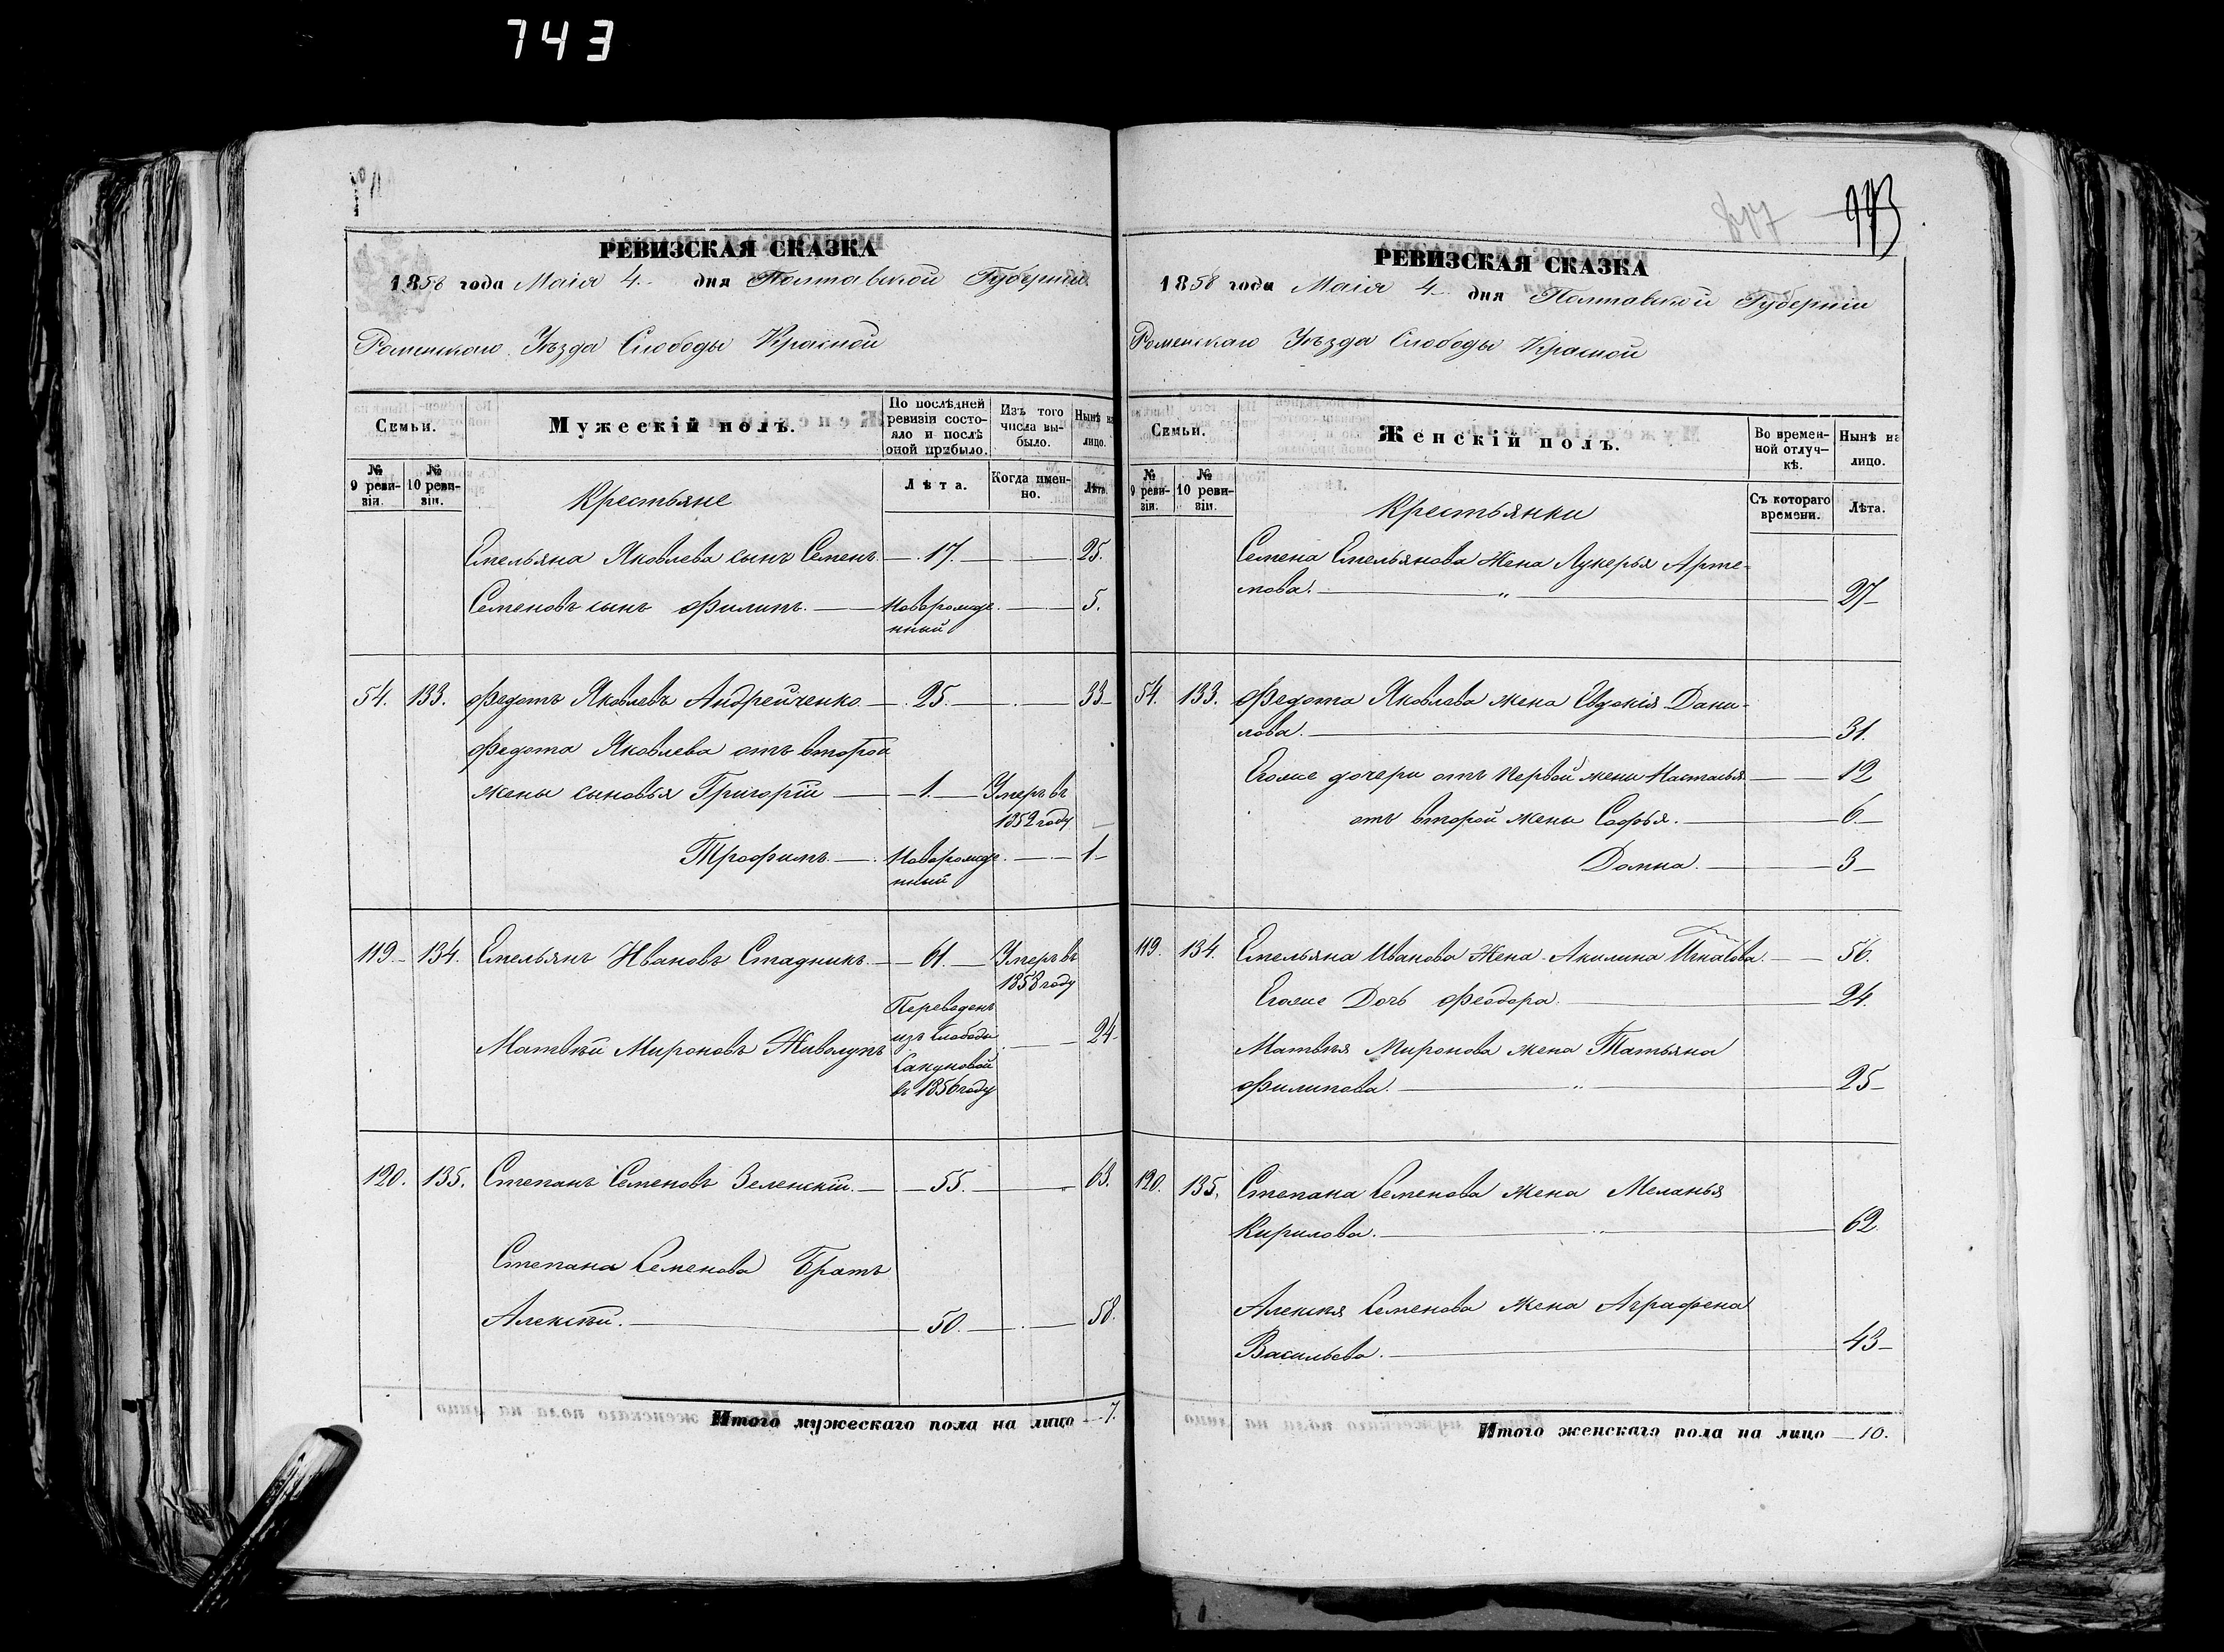 743
РЕВИЗСКАЯ СКАЗКА
1858 года Маія 4 дня Полтавской Губерніи
Роменскаго Уѣзда Слободы Красной
Семьи.
Мужескій полъ.
По послѣдней ревизіи состояло и послѣ оной прибыло.
Изъ того числа выбыло.
Нынѣ на лицо.
№ 9 ревизіи.
№ 10 ревизіи.
Крестьяне
Лѣта.
Когда именно.
Лѣта.
Емельяна Яковлева сынъ Семенъ — 17. — 25.
Семеновъ сынъ Филипъ. — Новорожде- — 5.
нный
54. 133. Федотъ Яковлевъ Андрейченко — 25. — 33
Федота Яковлева отъ второй
жены сыновья Григорій — 1. — Умеръ въ
1852 году —
Трофимъ — Новорожде- — 1
нный
119. 134. Емельянъ Ивановъ Стадникъ. — 61. — Умеръ въ
1858 году
Переведенъ
Матвѣй Мироновъ Живолупъ изъ Слободы — 24
Сакуновой
въ 1856 году
120. 135. Степанъ Семеновъ Зеленскій. — 55. — 63.
Степана Семенова Братъ
Алексѣй. — 50. — 58.
Итого мужескаго пола на лицо — 7.
743
РЕВИЗСКАЯ СКАЗКА
1858 года Маія 4 дня Полтавской Губерніи
Роменскаго Уѣзда Слободы Красной
Семьи.
Женскій полъ.
Во временной отлучкѣ.
Нынѣ на лицо.
№ 9 ревизіи.
№ 10 ревизіи.
Крестьянки
Съ котораго времени.
Лѣта.
Семена Емельянова Жена Лукерья Арте-
мова. — 27
54. 133. Федота Яковлева жена Евдокія Дани-
лова. — 31.
Егоже дочери отъ первой жены Настасья — 12
отъ второй жены Софья. — 6
Домна. — 3
119. 134. Емельяна Иванова Жена Акилина Игнатова. — 56.
Егоже Дочь Феодора. — 24.
Матвѣя Миронова жена Татьяна
Филипова. — 25
120. 135. Степана Семенова жена Меланья
Кирилова. — 62.
Алексѣя Семенова жена Аграфена
Васильева. — 43
Итого женскаго пола на лицо — 10.